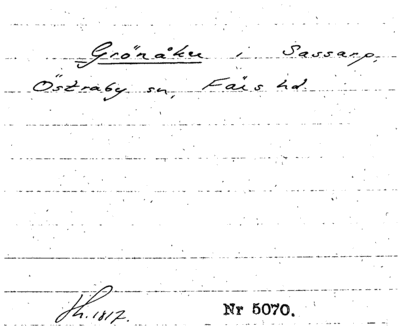 Grönåker i Sassarp,
Östraby sn, Färs hd.
Nr 5070.